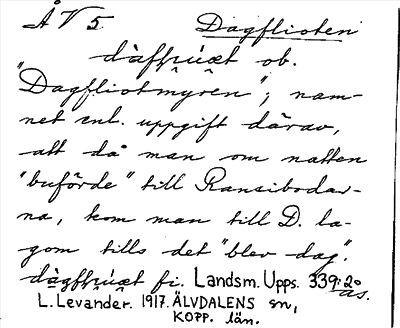 ÅV5 Dagflioten
ob.
"Dagfliotmyren"; nam-
net enl. uppgift därav,
att då man om natten
"buförde" till Ransibodar-
na, kom man till D. la-
gom tills det "blev dag".
fi. Landsm. Upps. 339:20
ås.
L. Levander. 1917. ÄLVDALENS sn,
KOPP. län.